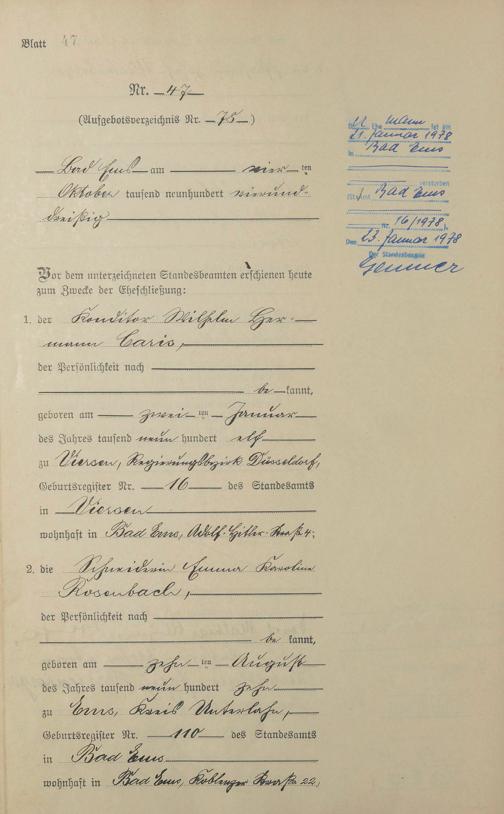 Blatt 47
Nr. 47
(Aufgebotsverzeichnis Nr. 75)
Bad Ems am vier ten
Oktober tausend neunhundert vierund-
dreißig
Vor dem unterzeichneten Standesbeamten erschienen heute
zum Zwecke der Eheschließung:
1. der Konditor Wilhelm Her-
mann Caris,
der Persönlichkeit nach
be kannt,
geboren am zwei ten Januar
des Jahres tausend neun hundert elf
zu Viersen, Regierungsbezirk Düsseldorf,
Geburtsregister Nr. 16 des Standesamts
in Viersen
wohnhaft in Bad Ems, Adolf-Hitler-Straße 4;
2. die Schneiderin Emma Karoline
Rosenbach,
der Persönlichkeit nach
be kannt,
geboren am zehn ten August
des Jahres tausend neun hundert zehn
zu Ems, Kreis Unterlahn,
Geburtsregister Nr. 110 des Standesamts
in Bad Ems
wohnhaft in Bad Ems, Koblenzer Straße 22,
Ehe mann ist am
21. Januar 1978
in Bad Ems
verstorben
Bad Ems
Nr. 16/1978).
Den 23. Januar 1978
Der Standesbeamte